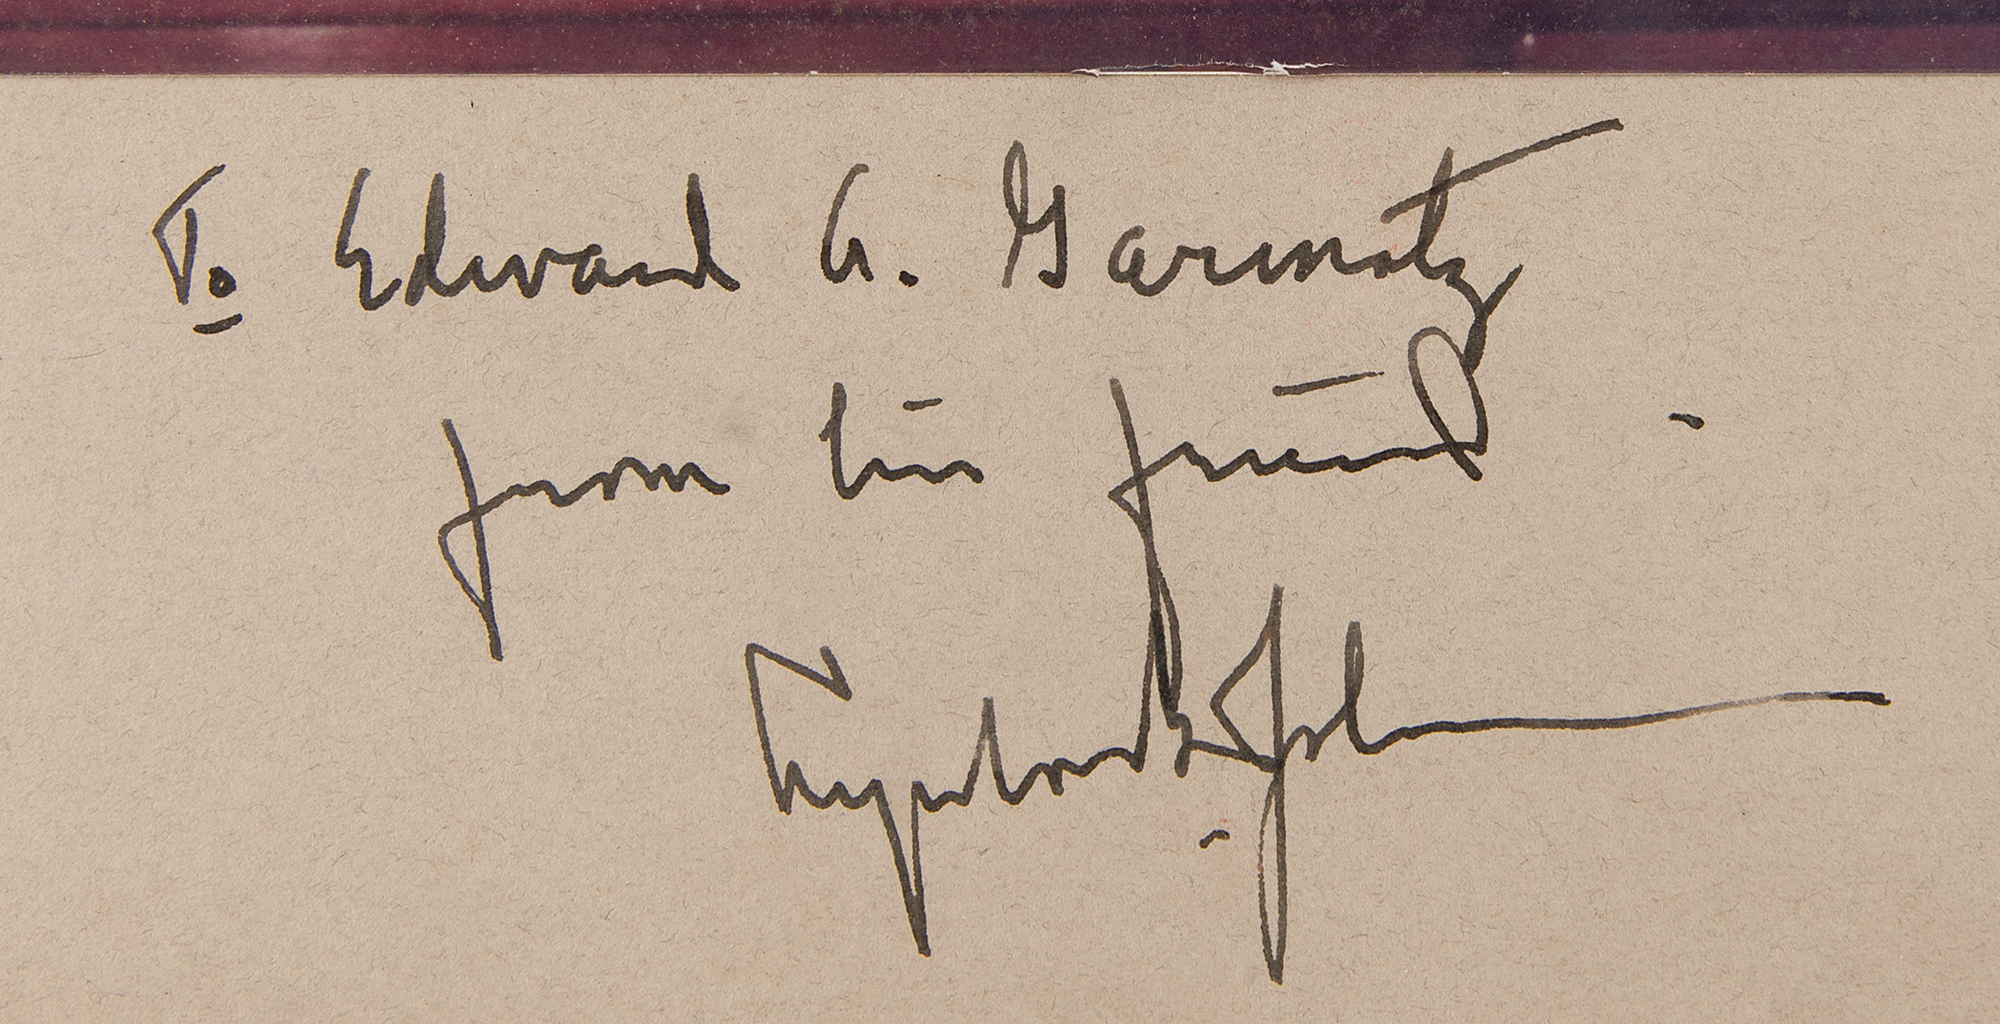 To Edward A. Garmatz
from his friend
Lyndon B. Johnson